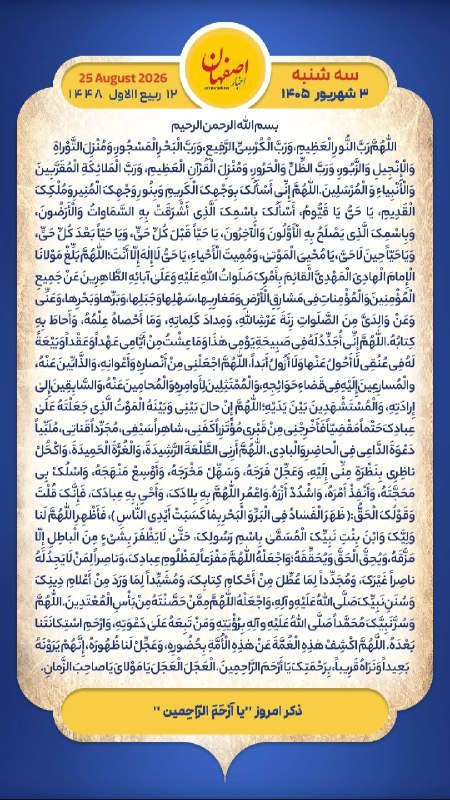 اصفهان
اخبار
سه شنبه
25 August 2026
۳ شهریور ۱۴۰۵
۱۲ ربیع الاول ۱۴۴۸
بسم الله الرحمن الرحیم
اللَّهُمَّ رَبَّ النُّورِ الْعَظِیمِ، وَرَبَّ الْكُرْسِيِّ الرَّفِیعِ، وَرَبَّ الْبَحْرِ الْمَسْجُورِ، وَمُنْزِلَ التَّوْرَاةِ
وَالْإِنْجِیلِ وَالزَّبُورِ، وَرَبَّ الظِّلِّ وَالْحَرُورِ، وَمُنْزِلَ الْقُرْآنِ الْعَظِیمِ، وَرَبَّ الْمَلَائِكَةِ الْمُقَرَّبِینَ
وَالْأَنْبِیَاءِ وَالْمُرْسَلِینَ. اللَّهُمَّ إِنِّي أَسْأَلُكَ بِوَجْهِكَ الْكَرِیمِ وَبِنُورِ وَجْهِكَ الْمُنِیرِ وَمُلْكِكَ
الْقَدِیمِ، یَا حَيُّ یَا قَیُّومُ، أَسْأَلُكَ بِاسْمِكَ الَّذِي أَشْرَقَتْ بِهِ السَّمَاوَاتُ وَالْأَرَضُونَ،
وَبِاسْمِكَ الَّذِي یَصْلَحُ بِهِ الْأَوَّلُونَ وَالْآخِرُونَ، یَا حَیّاً قَبْلَ كُلِّ حَيٍّ، وَیَا حَیّاً بَعْدَ كُلِّ حَيٍّ،
وَیَا حَیّاً حِینَ لَا حَيَّ، یَا مُحْیِيَ الْمَوْتَى، وَمُمِیتَ الْأَحْیَاءِ، یَا حَيُّ لَا إِلَهَ إِلَّا أَنْتَ؛ اللَّهُمَّ بَلِّغْ مَوْلَانَا
الْإِمَامَ الْهَادِيَ الْمَهْدِيَّ الْقَائِمَ بِأَمْرِكَ صَلَوَاتُ اللهِ عَلَیْهِ وَعَلَى آبَائِهِ الطَّاهِرِینَ عَنْ جَمِیعِ
الْمُؤْمِنِینَ وَالْمُؤْمِنَاتِ فِي مَشَارِقِ الْأَرْضِ وَمَغَارِبِهَا، سَهْلِهَا وَجَبَلِهَا، وَبَرِّهَا وَبَحْرِهَا، وَعَنِّي
وَعَنْ وَالِدَيَّ مِنَ الصَّلَوَاتِ زِنَةَ عَرْشِ اللهِ، وَمِدَادَ كَلِمَاتِهِ، وَمَا أَحْصَاهُ عِلْمُهُ، وَأَحَاطَ بِهِ
كِتَابُهُ. اللَّهُمَّ إِنِّي أُجَدِّدُ لَهُ فِي صَبِیحَةِ یَوْمِي هَذَا وَمَا عِشْتُ مِنْ أَیَّامِي عَهْداً وَعَقْداً وَبَیْعَةً
لَهُ فِي عُنُقِي لَا أَحُولُ عَنْهَا وَلَا أَزُولُ أَبَداً، اللَّهُمَّ اجْعَلْنِي مِنْ أَنْصَارِهِ وَأَعْوَانِهِ، وَالذَّابِّینَ عَنْهُ،
وَالْمُسَارِعِینَ إِلَیْهِ فِي قَضَاءِ حَوَائِجِهِ، وَالْمُمْتَثِلِینَ لِأَوَامِرِهِ وَالْمُحَامِینَ عَنْهُ، وَالسَّابِقِینَ إِلَى
إِرَادَتِهِ، وَالْمُسْتَشْهَدِینَ بَیْنَ یَدَیْهِ؛ اللَّهُمَّ إِنْ حَالَ بَیْنِي وَبَیْنَهُ الْمَوْتُ الَّذِي جَعَلْتَهُ عَلَى
عِبَادِكَ حَتْماً مَقْضِیّاً فَأَخْرِجْنِي مِنْ قَبْرِي مُؤْتَزِراً كَفَنِي، شَاهِراً سَیْفِي، مُجَرِّداً قَنَاتِي، مُلَبِّیاً
دَعْوَةَ الدَّاعِي فِي الْحَاضِرِ وَالْبَادِي. اللَّهُمَّ أَرِنِي الطَّلْعَةَ الرَّشِیدَةَ، وَالْغُرَّةَ الْحَمِیدَةَ، وَاكْحُلْ
نَاظِرِي بِنَظْرَةٍ مِنِّي إِلَیْهِ، وَعَجِّلْ فَرَجَهُ، وَسَهِّلْ مَخْرَجَهُ، وَأَوْسِعْ مَنْهَجَهُ، وَاسْلُكْ بِي
مَحَجَّتَهُ، وَأَنْفِذْ أَمْرَهُ، وَاشْدُدْ أَزْرَهُ. وَاعْمُرِ اللَّهُمَّ بِهِ بِلَادَكَ، وَأَحْيِ بِهِ عِبَادَكَ، فَإِنَّكَ قُلْتَ
وَقَوْلُكَ الْحَقُّ: (ظَهَرَ الْفَسَادُ فِي الْبَرِّ وَالْبَحْرِ بِمَا كَسَبَتْ أَیْدِي النَّاسِ)، فَأَظْهِرِ اللَّهُمَّ لَنَا
وَلِیَّكَ وَابْنَ بِنْتِ نَبِیِّكَ الْمُسَمَّى بِاسْمِ رَسُولِكَ، حَتَّى لَا یَظْفَرَ بِشَيْءٍ مِنَ الْبَاطِلِ إِلَّا
مَزَّقَهُ، وَیُحِقَّ الْحَقَّ وَیُحَقِّقَهُ؛ وَاجْعَلْهُ اللَّهُمَّ مَفْزَعاً لِمَظْلُومِ عِبَادِكَ، وَنَاصِراً لِمَنْ لَا یَجِدُ لَهُ
نَاصِراً غَیْرَكَ، وَمُجَدِّداً لِمَا عُطِّلَ مِنْ أَحْكَامِ كِتَابِكَ، وَمُشَیِّداً لِمَا وَرَدَ مِنْ أَعْلَامِ دِینِكَ
وَسُنَنِ نَبِیِّكَ صَلَّى اللهُ عَلَیْهِ وَآلِهِ، وَاجْعَلْهُ اللَّهُمَّ مِمَّنْ حَصَّنْتَهُ مِنْ بَأْسِ الْمُعْتَدِینَ. اللَّهُمَّ
وَسُرَّ نَبِیَّكَ مُحَمَّداً صَلَّى اللهُ عَلَیْهِ وَآلِهِ بِرُؤْیَتِهِ وَمَنْ تَبِعَهُ عَلَى دَعْوَتِهِ، وَارْحَمِ اسْتِكَانَتَنَا
بَعْدَهُ. اللَّهُمَّ اكْشِفْ هَذِهِ الْغُمَّةَ عَنْ هَذِهِ الْأُمَّةِ بِحُضُورِهِ، وَعَجِّلْ لَنَا ظُهُورَهُ، إِنَّهُمْ یَرَوْنَهُ
بَعِیداً وَنَرَاهُ قَرِیباً، بِرَحْمَتِكَ یَا أَرْحَمَ الرَّاحِمِینَ. الْعَجَلَ الْعَجَلَ یَا مَوْلَايَ یَا صَاحِبَ الزَّمَانِ.
ذکر امروز "یا أَرْحَمَ الرَّاحِمین"